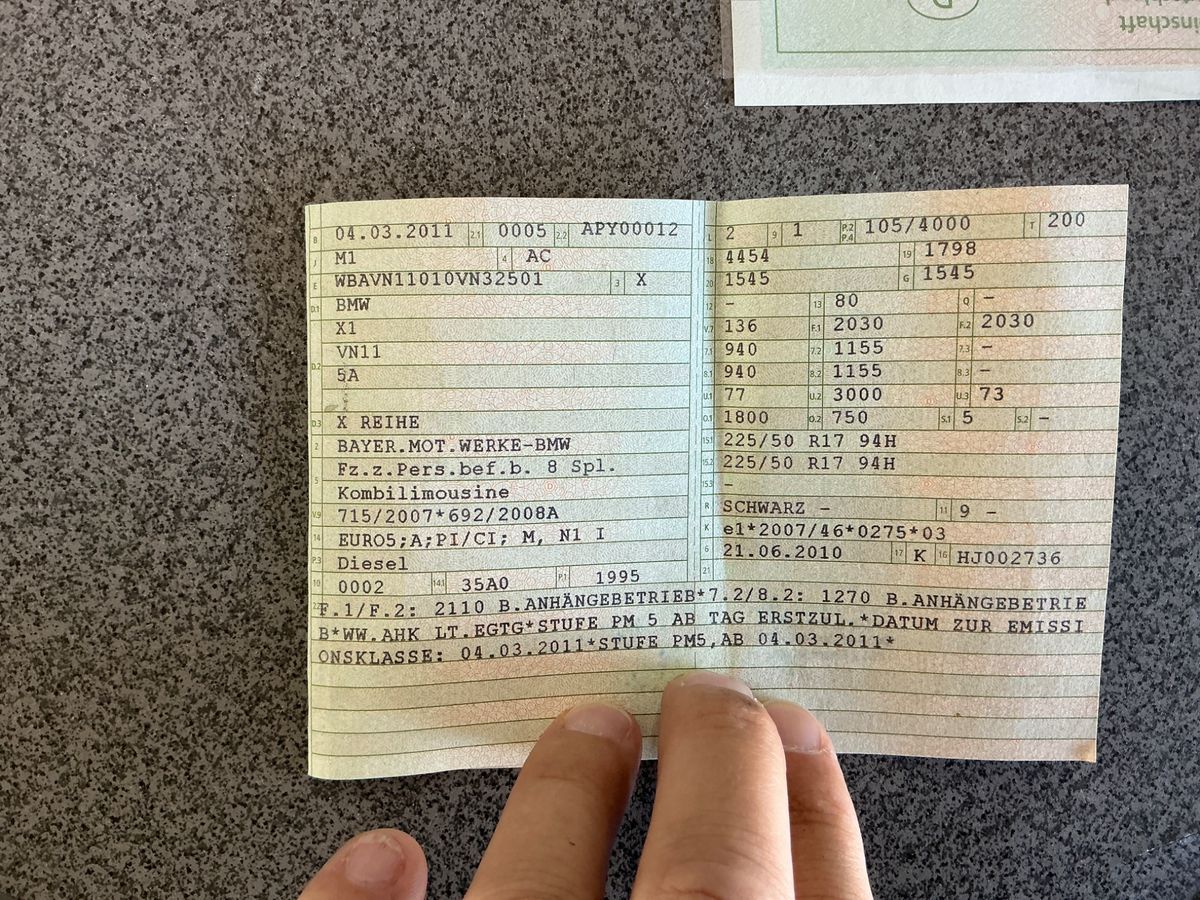 inschaft
D
B 04.03.2011 2.1 0005 2.2 APY00012
J M1 4 AC
E WBAVN11010VN32501 3 X
D.1 BMW
X1
D.2 VN11
5A
D.3 X REIHE
2 BAYER.MOT.WERKE-BMW
5 Fz.z.Pers.bef.b. 8 Spl.
Kombilimousine
V.9 715/2007*692/2008A
14 EURO5;A;PI/CI; M, N1 I
P.3 Diesel
10 0002 14.1 35A0 P.1 1995
L 2 9 1 P.2 P.4 105/4000 T 200
18 4454 19 1798
20 1545 G 1545
12 - 13 80 Q -
V.7 136 F.1 2030 F.2 2030
7.1 940 7.2 1155 7.3 -
8.1 940 8.2 1155 8.3 -
U.1 77 U.2 3000 U.3 73
O.1 1800 O.2 750 S.1 5 S.2 -
15.1 225/50 R17 94H
15.2 225/50 R17 94H
15.3 -
R SCHWARZ - 11 9 -
K e1*2007/46*0275*03
6 21.06.2010 17 K 16 HJ002736
21
22 F.1/F.2: 2110 B.ANHÄNGEBETRIEB*7.2/8.2: 1270 B.ANHÄNGEBETRIE
B*WW.AHK LT.EGTG*STUFE PM 5 AB TAG ERSTZUL.*DATUM ZUR EMISSI
ONSKLASSE: 04.03.2011*STUFE PM5,AB 04.03.2011*